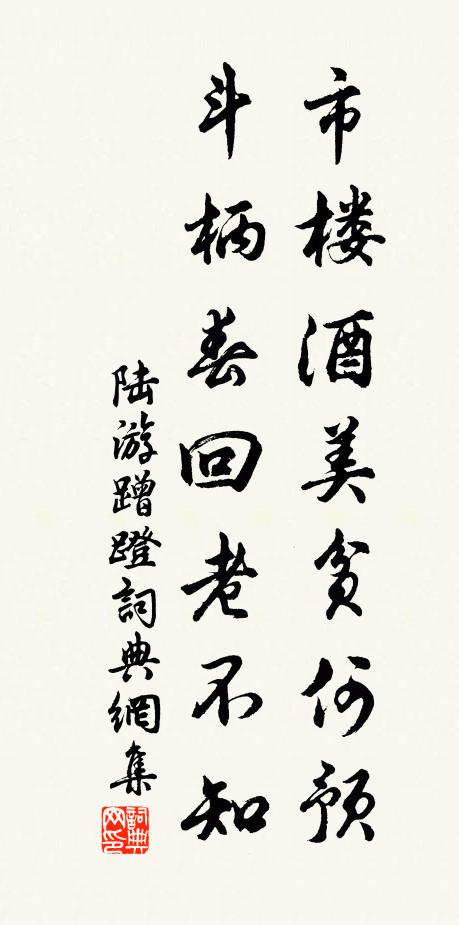 市楼酒美贫何预
斗柄春回老不知
陆游蹭蹬詞典網集
詞典网印